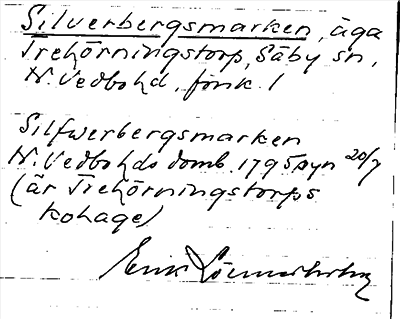 Silverbergsmarken, äga
Trehörningstorp, Säby sn,
N. Vedbo hd, Jönk. l
Silfwerbergsmarken
N. Vedbo hds domb. 1795 syn 20/7
(är Trehörningstorps
kohage)
Erik